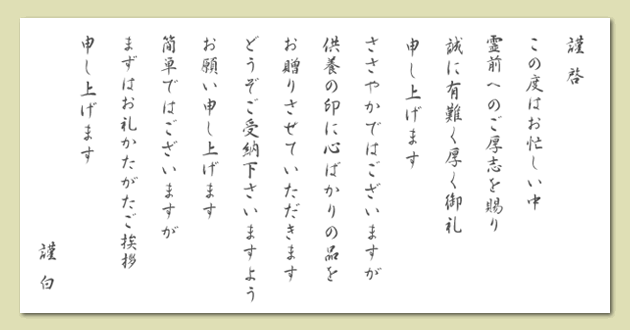 謹啓
この度はお忙しい中
霊前へのご厚志を賜り
誠に有難く厚く御礼
申し上げます
ささやかではございますが
供養の印に心ばかりの品を
お贈りさせていただきます
どうぞご受納下さいますよう
お願い申し上げます
簡単ではございますが
まずはお礼かたがたご挨拶
申し上げます
謹白